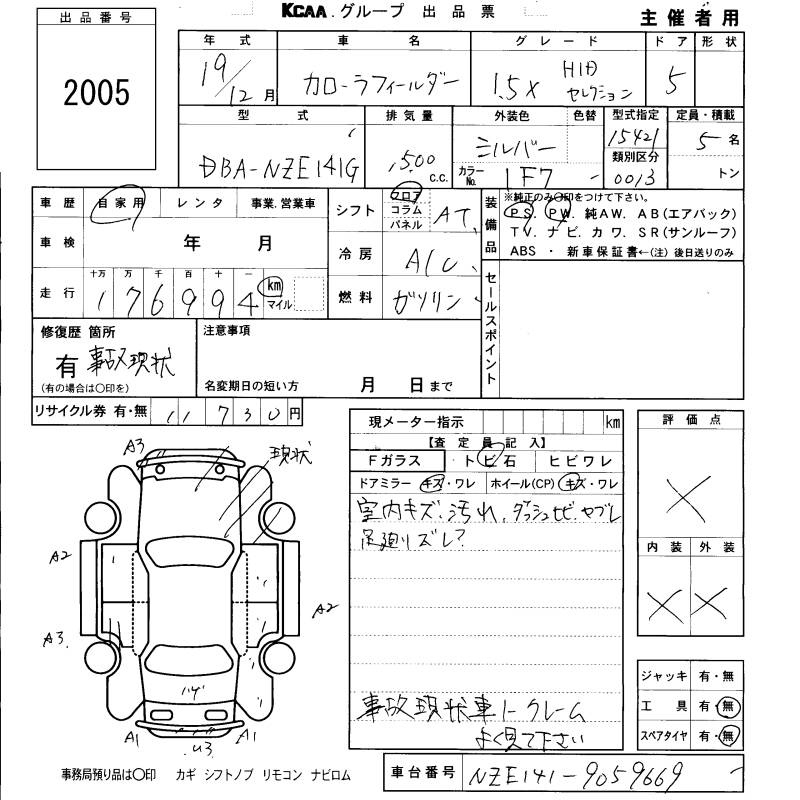 出品番号
2005
KCAA.グループ 出品票
主催者用
年式 車名 グレード ドア 形状
19/12月 カローラフィールダー 1.5X HID セレクション 5
型式 排気量 外装色 色替 型式指定 定員・積載
DBA-NZE141G 1500 c.c. シルバー 15421 5名
カラーNo. 1F7 類別区分 0013 トン
車歴 自家用 レンタ 事業.営業車
シフト フロア コラム パネル AT
装備品 ※純正のみ○印をつけて下さい。
PS. PW. 純AW. AB(エアバック)
TV. ナビ. カワ. SR(サンルーフ)
ABS ・ 新車保証書←(注)後日送りのみ
車検 年 月
冷房 A/C
走行 十万 万 千 百 十 一
176994 km マイル
燃料 ガソリン
セールスポイント
修復歴 箇所
有 事故現状
(有の場合は○印を)
注意事項
名変期日の短い方 月 日まで
リサイクル券 有・無 11730円
現メーター指示 km
【査定員記入】
Fガラス トビ石 ヒビワレ
ドアミラー キズ・ワレ ホイール(CP) キズ・ワレ
室内キズ.汚れ.ダッシュビ.ヤブレ
足廻リズレ?
事故現状車ノークレーム
よく見て下さい
評価点
×
内装 外装
× ×
ジャッキ 有・無
工具 有・無
スペアタイヤ 有・無
A3
現状
A2
A2
A3
ハゲ
A1
U3
A1
事務局預り品は○印 カギ シフトノブ リモコン ナビロム
車台番号 NZE141-9059669